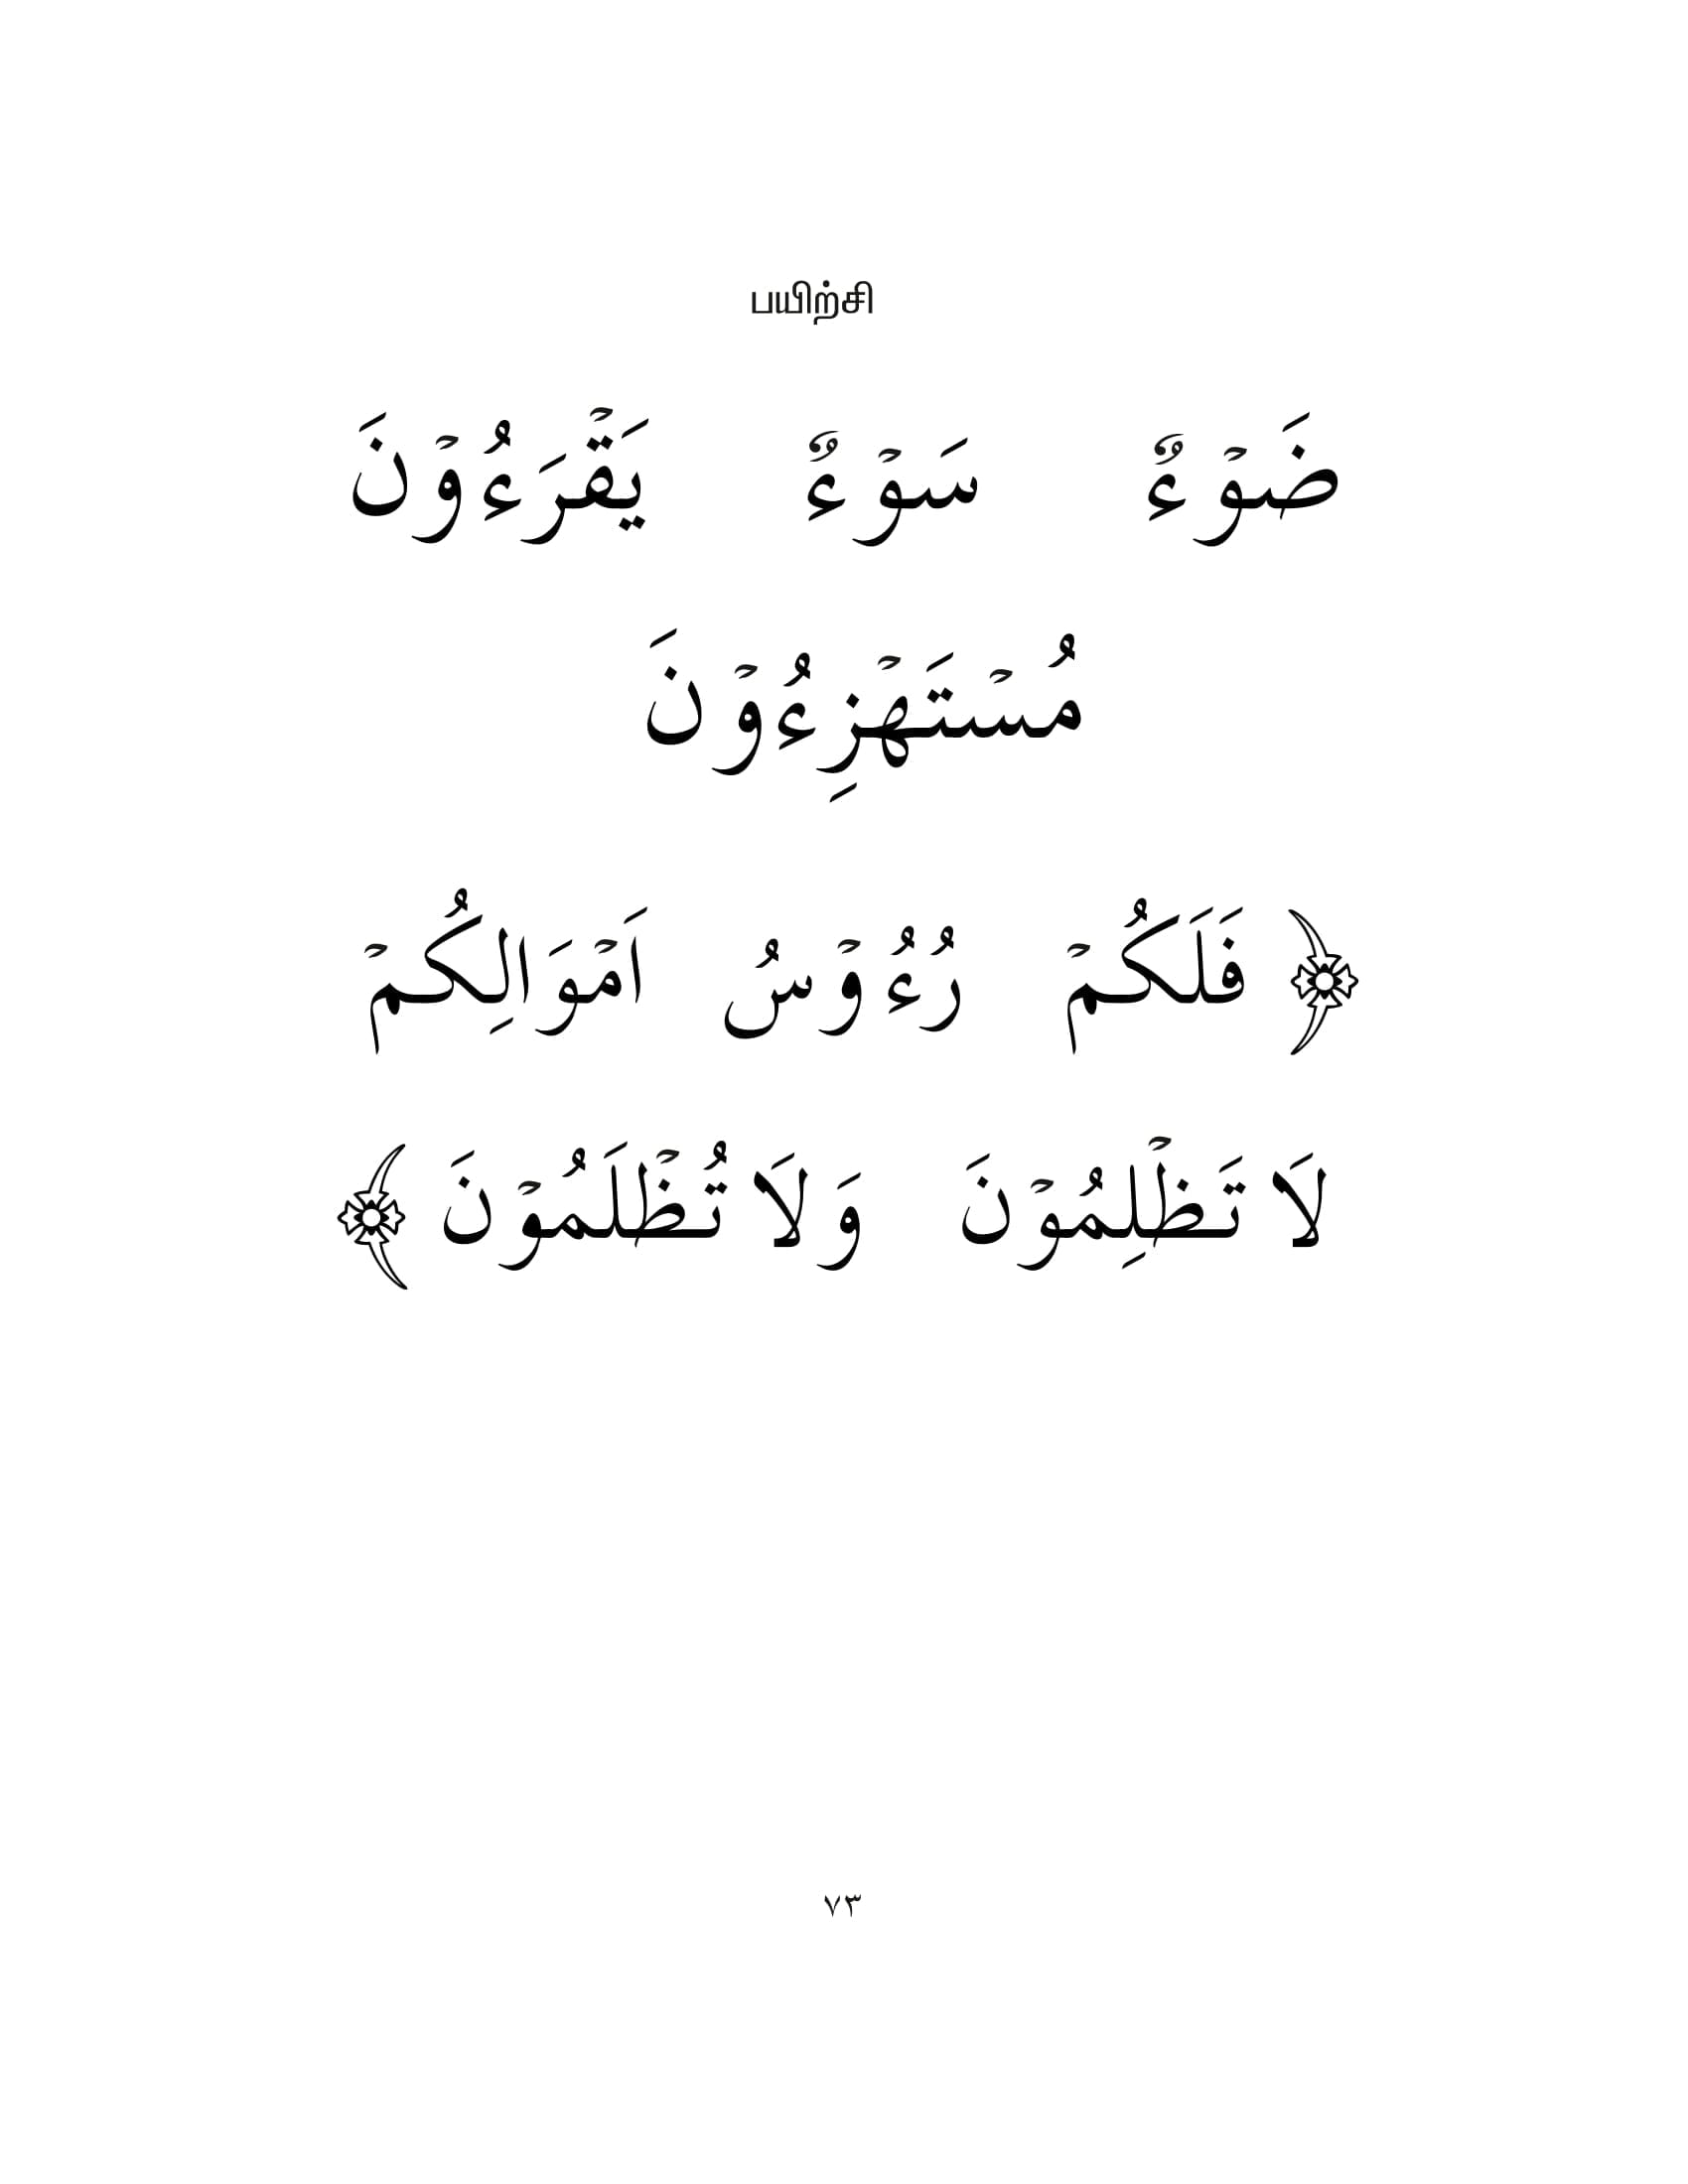 பயிற்சி
ضَوْءٌ سَوْءٌ يَقْرَءُوْنَ
مُسْتَهْزِءُوْنَ
﴿ فَلَكُمْ رُءُوْسُ اَمْوَالِكُمْ
لَا تَظْلِمُوْنَ وَلَا تُظْلَمُوْنَ ﴾
٧٣